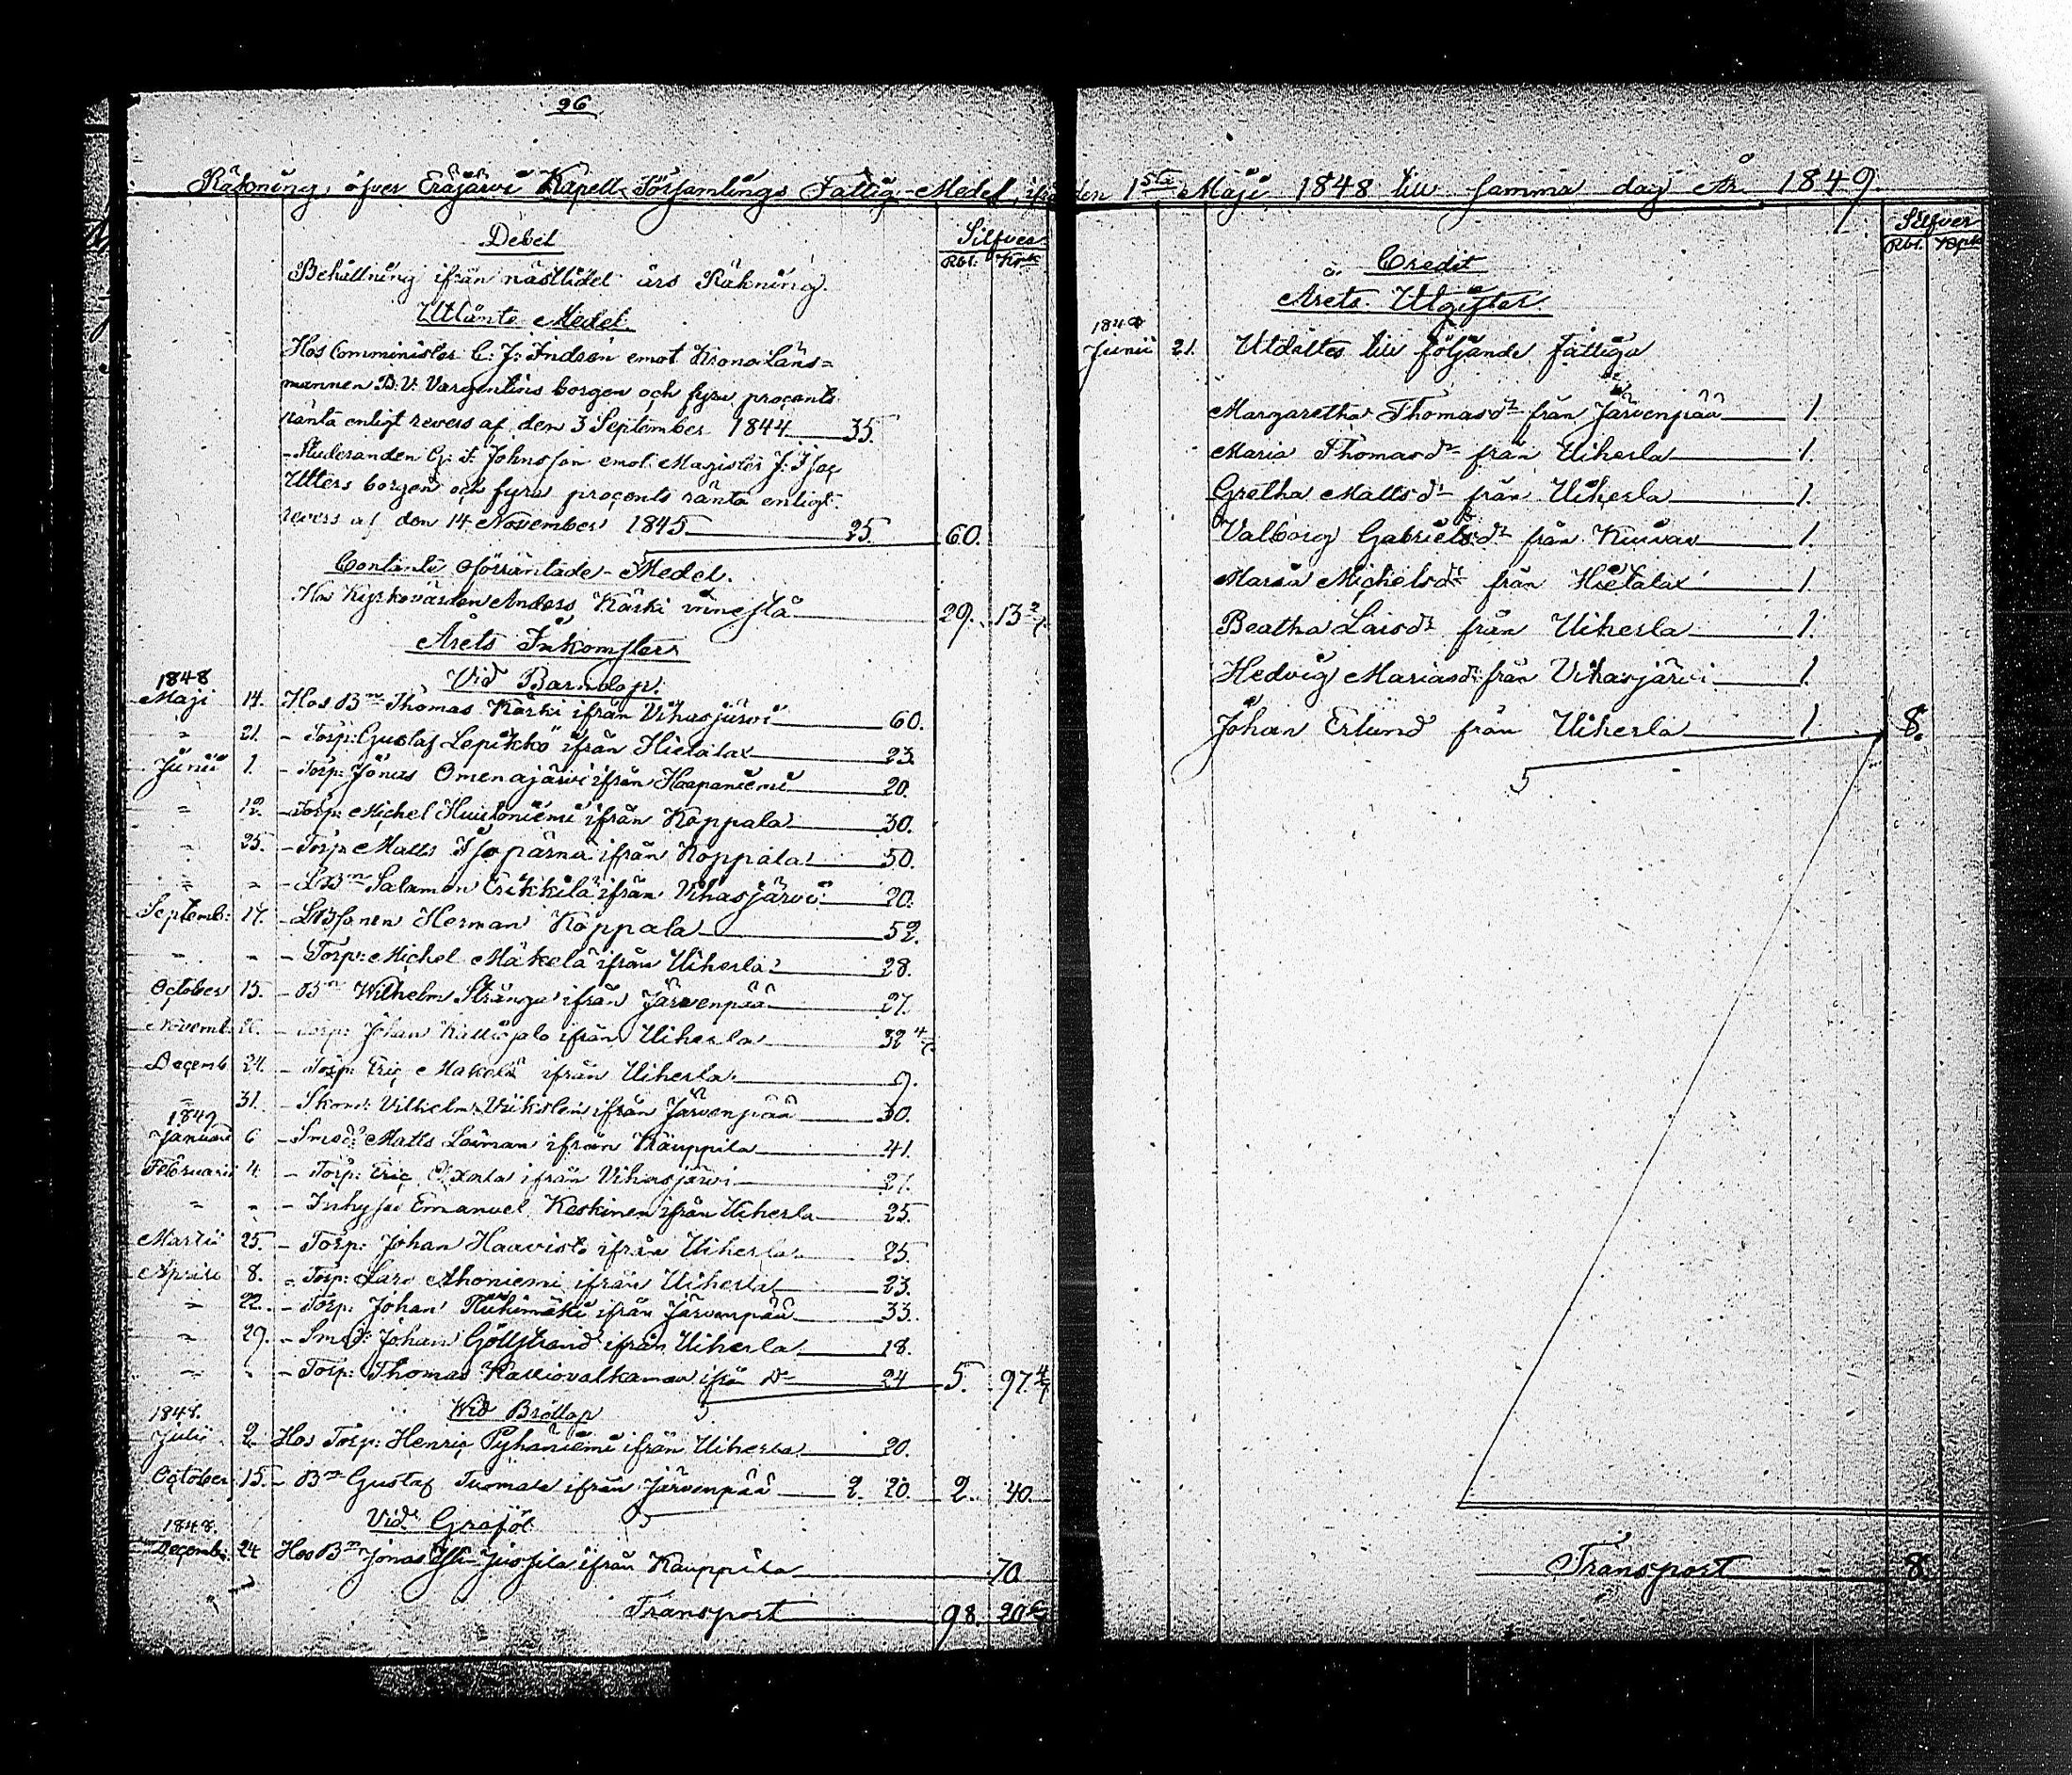 96
Räkning öfver Eräjärvi Kapell-Församlings Fattig-Medel, ifrån den 1sta Maji 1848 till samma dag År 1849.
Debet
Silfver
Rbl. Kopk
Behållning ifrån nästlidet års Räkning.
Utlånte Medel.
Hos Comminister C: J: Indrén emot Krono Läns=
mannen B. V. Vargentins borgen och fyra procents
ränta enligt revers af den 3 September 1844 35.
- Studeranden G: F: Johnsson emot Magister J: Isac
Utters borgen och fyra procents ränta enligt
revers af den 14 November 1845 25. 60.
Contanta oförräntade Medel.
Hos Kyrkovärden Anders Kärki innestå 29. 13 2/7
Årets Inkomster
Vid Barndop.
1848
Maji 14. Hos Bn Thomas Kärki ifrån Vihasjärvi 60.
" 21. - Torp: Gustaf Lepikkö ifrån Hietalax 23.
Junii 1. - Torp: Jonas Omenajärvi ifrån Haapaniemi 20.
" 12. - Torp: Michel Huutoniemi ifrån Koppala 30.
" 25. - Torp: Matts Isopärnä ifrån Koppala 50.
" " - LBn Salamon Erikkilä ifrån Vihasjärvi 20.
Septemb: 17. - LBsonen Herman Koppala 52.
" " - Torp: Michel Mäkelä ifrån Uiherla 28.
October 15. - Bn Wilhelm Stränga ifrån Järvenpää 27.
Novemb: 26. - Torp: Johan Kalliojalo ifrån Uiherla 32 4/7
Decemb 24. - Torp: Eric Mäkelä ifrån Uiherla 9.
" 31. - Skom: Vilhelm ifrån Järvenpää 30.
1849
Januari 6 - Smed: Matts Laiman ifrån Kauppila 41.
Februarii 4. - Torp: Eric ifrån Vihasjärvi 27.
" " - Inhyses Emanuel Keskinen ifrån Uiherla 25.
Martii 25. - Torp: Johan Haavisto ifrån Uiherla 25.
Aprili 8. - Torp: Lars Ahoniemi ifrån Uiherla 23.
" 22. - Torp: Johan Riihimäki ifrån Järvenpää 33.
" 29. - Smed: Johan Göllstrand ifrån Uiherla 18.
" " - Torp: Thomas Kalliovalkaman ifrå Do 24 5. 97 4/7
Wid Bröllop
1848.
Julii 2 Hos Torp: Henric Pyhäniemi ifrån Uiherla 20.
October 15. - Bn Gustaf Tuomala ifrån Järvenpää 2. 20. 2. 40.
Vid Graföl
1848.
Decemb: 24 Hos Bn Jonas Yli-Jussila ifrån Kauppila 70
Transport 98. 20 6/7
Silfver
Rbl. Kopk
Credit
Årets Utgifter.
1848
Junii 21. Utdältes till följande fattiga
Margaretha Thomasdr från Järvenpää 1.
Maria Thomasdr från Uiherla 1.
Gretha Mattsdr från Uiherla 1.
Valborg Gabrielsdr från Kuivas 1.
Maria Michelsdr från Hietalax 1.
Beatha Larsdr från Uiherla 1.
Hedvig Mariasdr från Vihasjärvi 1.
Johan Erlund från Uiherla 1 8.
Transport 8.